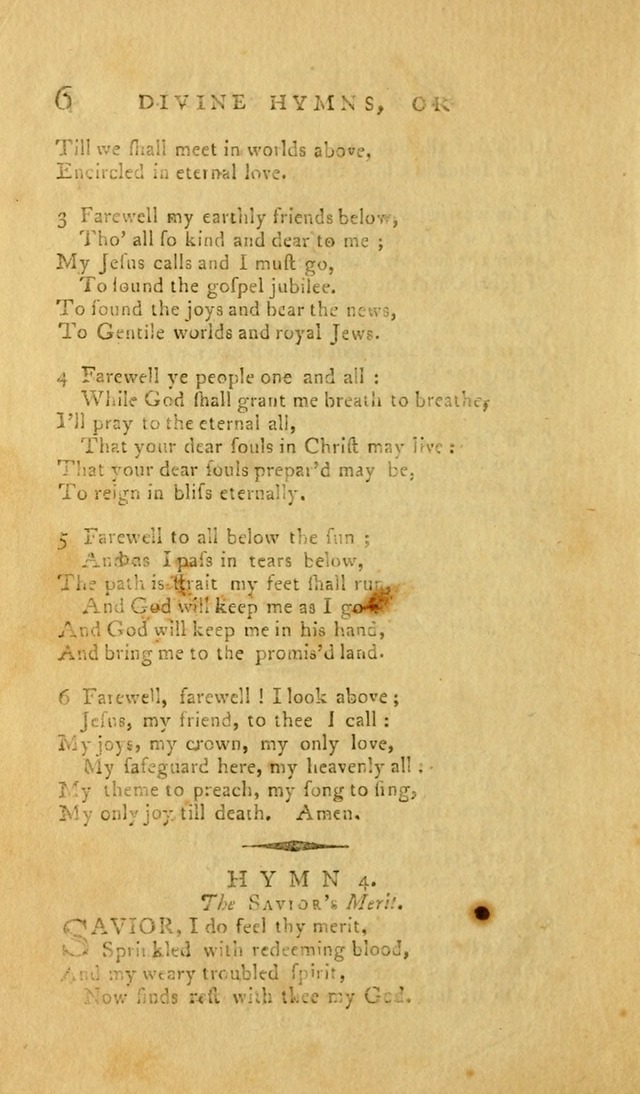 6 DIVINE HYMNS, OR
Till we ſhall meet in worlds above,
Encircled in eternal love.
3 Farewell my earthly friends below,
Tho' all ſo kind and dear to me ;
My Jeſus calls and I muſt go,
To ſound the goſpel jubilee.
To ſound the joys and bear the news,
To Gentile worlds and royal Jews.
4 Farewell ye people one and all :
While God ſhall grant me breath to breathe,
I'll pray to the eternal all,
That your dear ſouls in Chriſt may live :
That your dear ſouls prepar'd may be,
To reign in bliſs eternally.
5 Farewell to all below the ſun ;
And as I paſs in tears below,
The path is ſtrait my feet ſhall run,
And God will keep me as I go
And God will keep me in his hand,
And bring me to the promis'd land.
6 Farewell, farewell ! I look above ;
Jeſus, my friend, to thee I call :
My joys, my crown, my only love,
My ſafeguard here, my heavenly all :
My theme to preach, my ſong to ſing,
My only joy till death. Amen.
HYMN 4.
The SAVIOR's Merit.
SAVIOR, I do feel thy merit,
Sprinkled with redeeming blood,
And my weary troubled ſpirit,
Now finds reſt with thee my God.